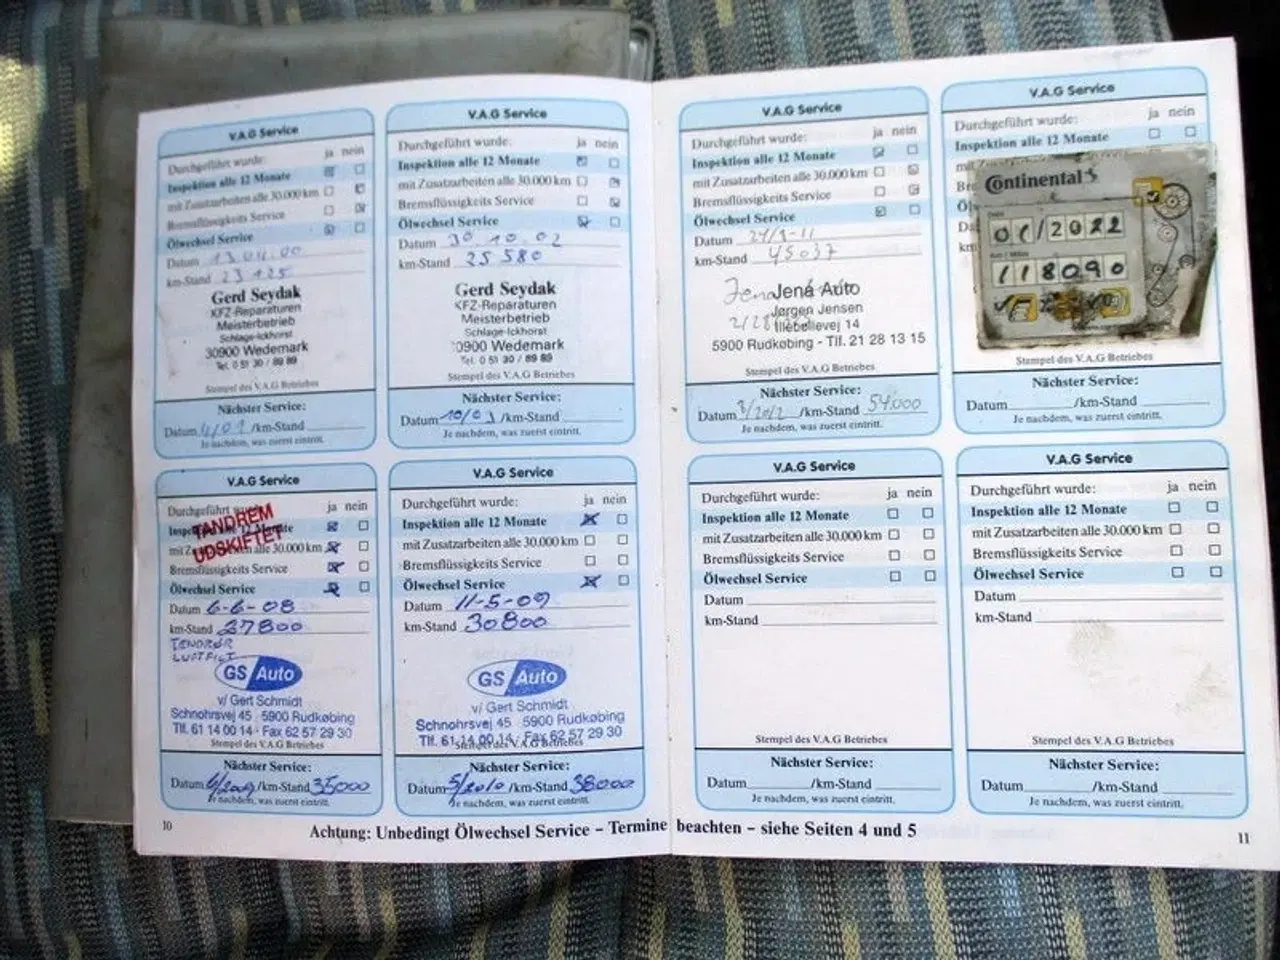 V.A.G Service
Durchgeführt wurde: ja nein
Inspektion alle 12 Monate
mit Zusatzarbeiten alle 30.000 km
Bremsflüssigkeits Service
Ölwechsel Service
Datum
km-Stand 23 125
Gerd Seydak
KFZ-Reparaturen
Meisterbetrieb
Schlage-Ickhorst
30900 Wedemark
Tel. 0 51 30 / 89 89
Stempel des V.A.G Betriebes
Nächster Service:
Datum 4/01 /km-Stand
Je nachdem, was zuerst eintritt.
V.A.G Service
Durchgeführt wurde: ja nein
Inspektion alle 12 Monate
mit Zusatzarbeiten alle 30.000 km
Bremsflüssigkeits Service
Ölwechsel Service
Datum 30.10.02
km-Stand 25 580
Gerd Seydak
KFZ-Reparaturen
Meisterbetrieb
Schlage-Ickhorst
30900 Wedemark
Tel. 0 51 30 / 89 89
Stempel des V.A.G Betriebes
Nächster Service:
Datum 10/03 /km-Stand
Je nachdem, was zuerst eintritt.
V.A.G Service
Durchgeführt wurde: ja nein
Inspektion alle 12 Monate
mit Zusatzarbeiten alle 30.000 km
Bremsflüssigkeits Service
Ölwechsel Service
Datum
km-Stand 45037
Jenå Auto
Jørgen Jensen
Illebøllevej 14
5900 Rudkøbing - Tlf. 21 28 13 15
Stempel des V.A.G Betriebes
Nächster Service:
Datum 3/2012 /km-Stand 54000
Je nachdem, was zuerst eintritt.
V.A.G Service
Durchgeführt wurde: ja nein
Inspektion alle 12 Monate
Continental
01/2022
118090
Stempel des V.A.G Betriebes
Nächster Service:
Datum /km-Stand
Je nachdem, was zuerst eintritt.
V.A.G Service
Durchgeführt wurde: ja nein
Inspektion alle 12 Monate
mit Zusatzarbeiten alle 30.000 km
TANDREM
UDSKIFTET
Bremsflüssigkeits Service
Ölwechsel Service
Datum 6-6-08
km-Stand 27800
TENDRØR
LUFTFILT
GS Auto
v/ Gert Schmidt
Schnohrsvej 45 5900 Rudkøbing
Tlf. 61 14 00 14 - Fax 62 57 29 30
Stempel des V.A.G Betriebes
Nächster Service:
Datum 6/2009 /km-Stand 35000
Je nachdem, was zuerst eintritt.
V.A.G Service
Durchgeführt wurde: ja nein
Inspektion alle 12 Monate
mit Zusatzarbeiten alle 30.000 km
Bremsflüssigkeits Service
Ölwechsel Service
Datum 11-5-09
km-Stand 30800
GS Auto
v/ Gert Schmidt
Schnohrsvej 45 5900 Rudkøbing
Tlf. 61 14 00 14 - Fax 62 57 29 30
Stempel des V.A.G Betriebes
Nächster Service:
Datum 5/2010 /km-Stand 38000
Je nachdem, was zuerst eintritt.
V.A.G Service
Durchgeführt wurde: ja nein
Inspektion alle 12 Monate
mit Zusatzarbeiten alle 30.000 km
Bremsflüssigkeits Service
Ölwechsel Service
Datum
km-Stand
Stempel des V.A.G Betriebes
Nächster Service:
Datum /km-Stand
Je nachdem, was zuerst eintritt.
V.A.G Service
Durchgeführt wurde: ja nein
Inspektion alle 12 Monate
mit Zusatzarbeiten alle 30.000 km
Bremsflüssigkeits Service
Ölwechsel Service
Datum
km-Stand
Stempel des V.A.G Betriebes
Nächster Service:
Datum /km-Stand
Je nachdem, was zuerst eintritt.
10
Achtung: Unbedingt Ölwechsel Service – Termine beachten – siehe Seiten 4 und 5
11